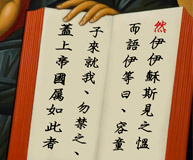 然伊伊穌斯見之慍
而語伊等曰、容童
子來就我、勿禁之、
蓋上帝國属如此者